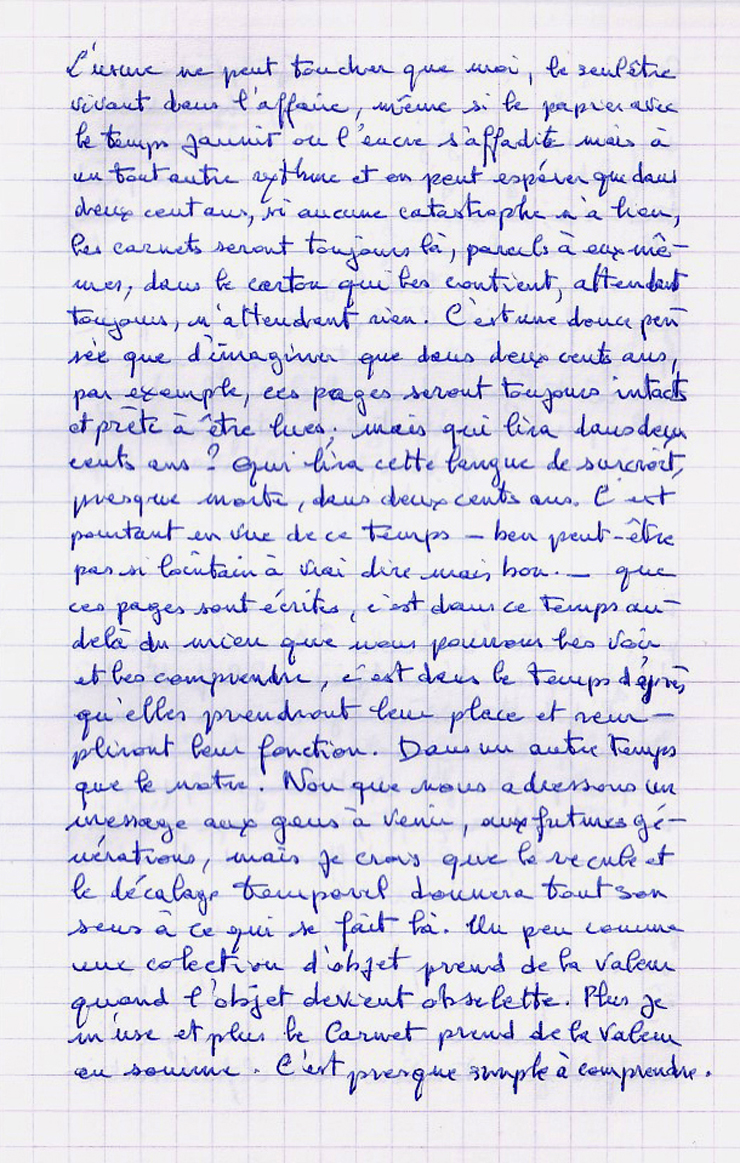 L'usure ne peut toucher que moi, le seul être
vivant dans l'affaire, même si le papier avec
le temps jaunit ou l'encre s'affadite mais à
un tout autre rythme et on peut espérer que dans
deux cent ans, si aucune catastrophe n'a lieu,
les carnets seront toujours là, pareils à eux-mê-
mes, dans le carton qui les contient, attendant
toujours, n'attendant rien. C'est une douce pen
sée que d'imaginer que dans deux cents ans,
par exemple, ces pages seront toujours intacts
et prête à être lues; mais qui lira dans deux
cents ans ? Qui lira cette langue de surcroît,
presque morte, dans deux cents ans. C'est
pourtant en vue de ce temps - ben peut-être
pas si lointain à vrai dire mais bon. - que
ces pages sont écrites, c'est dans ce temps au-
delà du mien que nous pourrons les voir
et les comprendre, c'est dans le temps d'après
qu'elles prendront leur place et rem-
pliront leur fonction. Dans un autre temps
que le notre. Non que nous adressons un
message aux gens à venir, aux futures gé-
nérations, mais je crois que le recule et
le décalage temporel donnera tout son
sens à ce qui se fait là. Un peu comme
une colection d'objet prend de la valeur
quand l'objet devient obselette. Plus je
m'use et plus le Carnet prend de la valeur
en somme. C'est presque simple à comprendre.